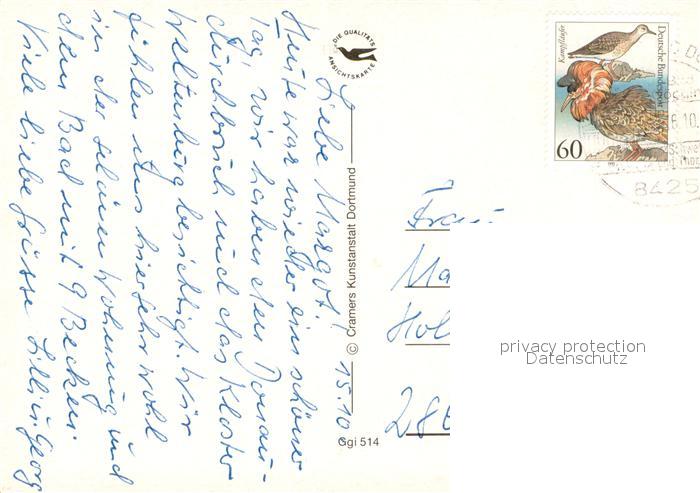 Liebe Margot! 15.10.
Heute war wieder ein schöner
Tag, wir haben den Donau-
durchbruch und das Kloster
Weltenburg besichtigt. Wir
fühlen uns hier sehr wohl
in der schönen Wohnung und
dem Bad mit 9 Becken.
Viele liebe Grüsse Lilli u. Georg
DIE QUALITÄTS
ANSICHTSKARTE
© Cramers Kunstanstalt Dortmund
Ggi 514
Kampfläufer
Deutsche Bundespost
60
8425
Frau
Ma
Hol
28
privacy protection
Datenschutz